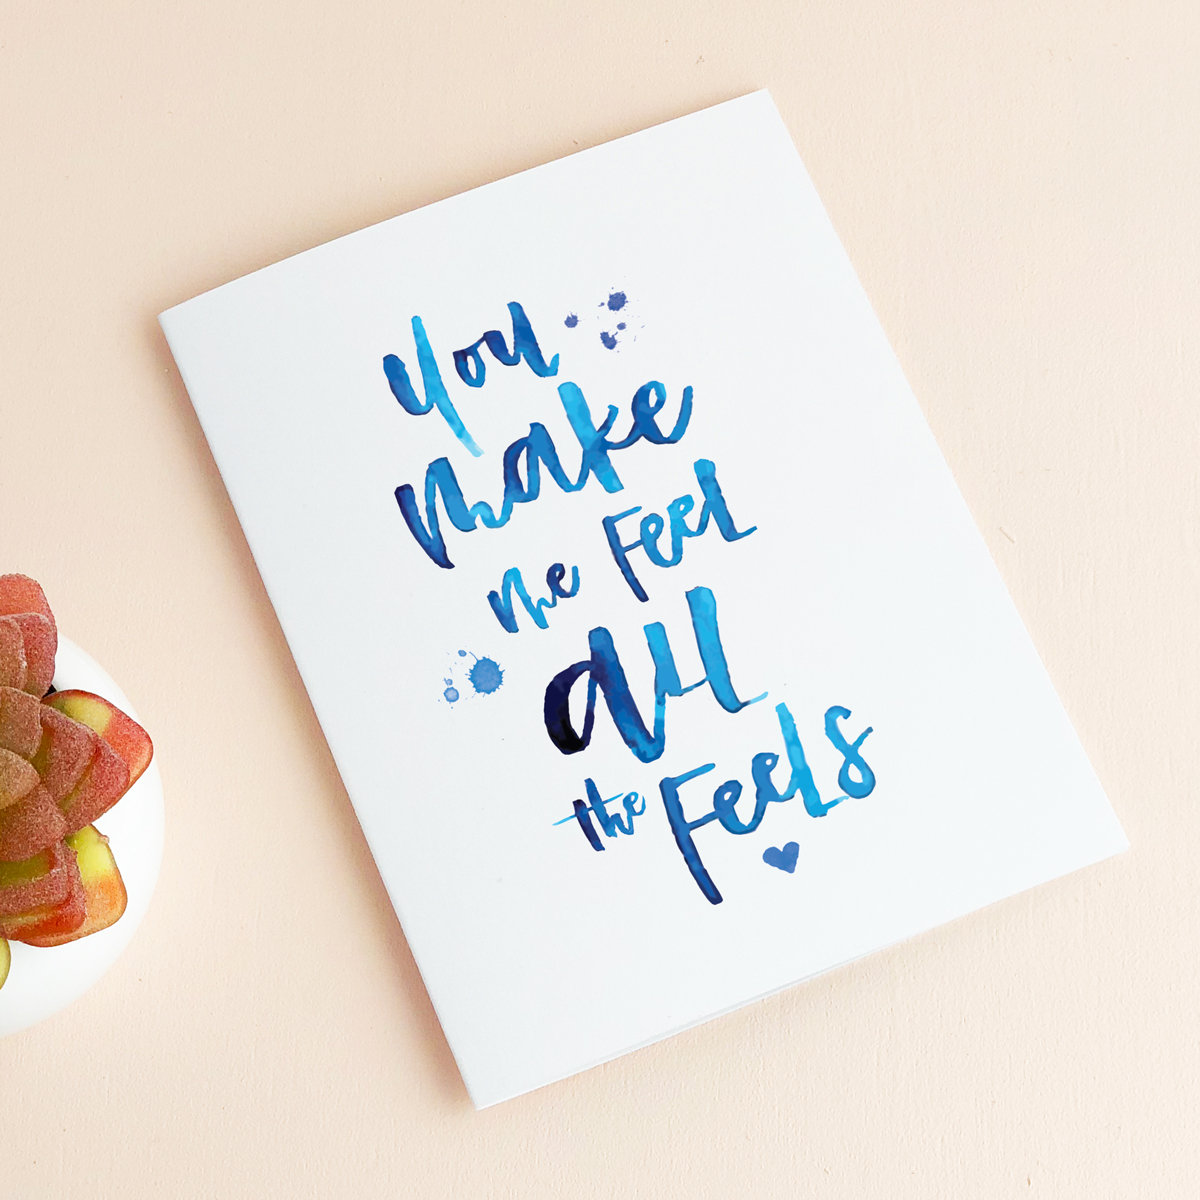 You
make
me FEEL
all
the FeeLS